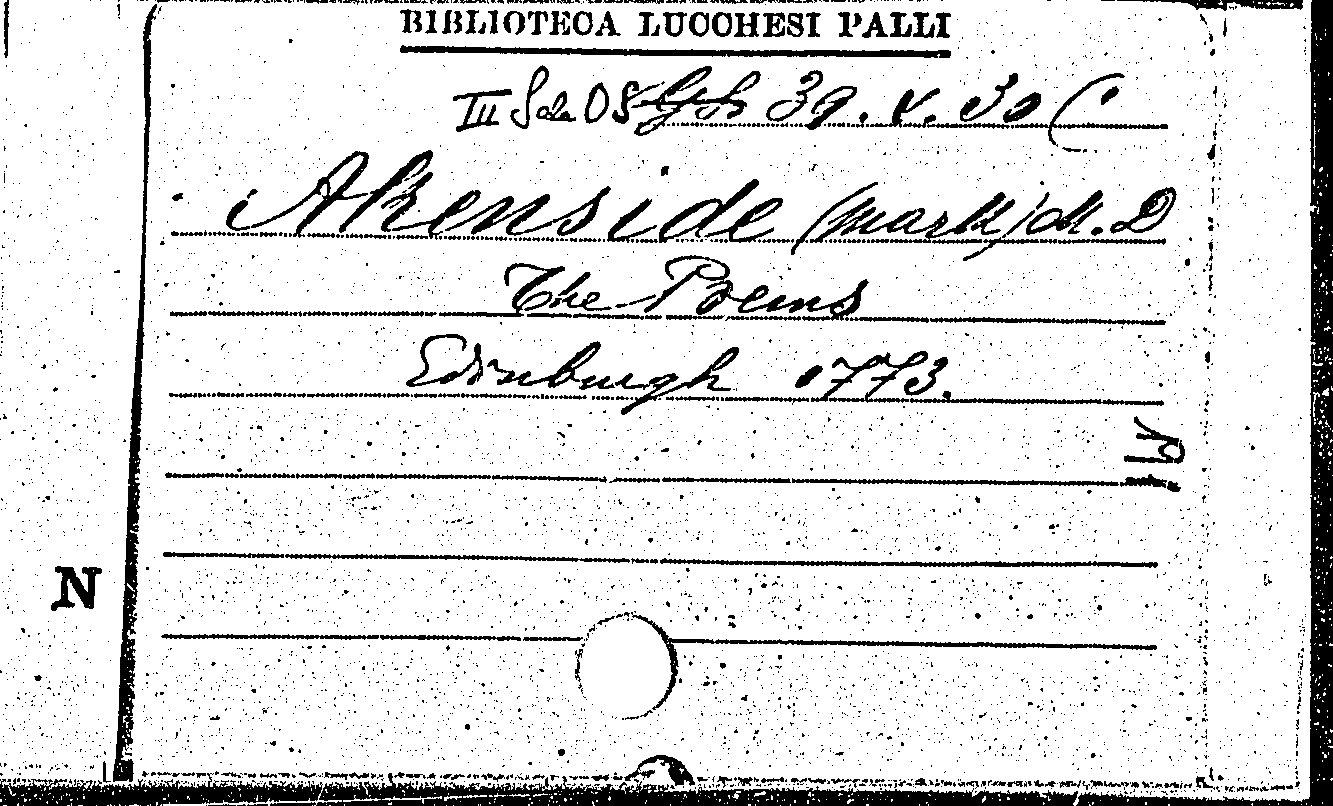 BIBLIOTECA LUCCHESI PALLI
III Sala 39. V. 30 (
Akenside (Mark) M. D
The Poems
Edinburgh 1773.
N